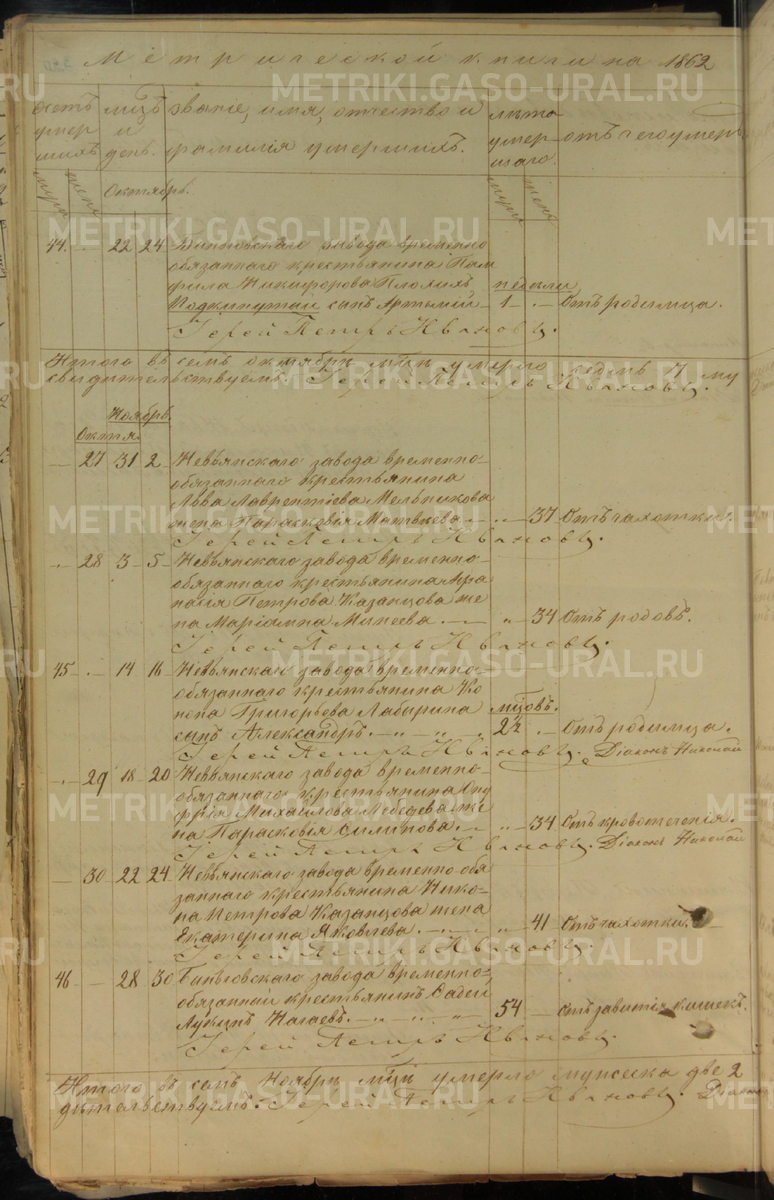 Метрической книги на 1862
Счетъ умершихъ
мѣсяцъ и день.
званіе, имя, отчество и фамилія умершихъ.
лѣта умершаго.
отъ чего умеръ
муж. жен.
Октябрь.
муж. жен.
44. - 22 24 завода временно
обязаннаго крестьянина Пам
фила Никифорова Плохихъ недѣли
Подкинутай сынъ Артемій - 1 - Отъ родимца.
Іерей Петръ Ивановъ.
Итого въ семъ октябрѣ мѣсяцѣ умерло седмь 7 му
свидительствуемъ. Іерей Петръ Ивановъ.
Ноябрь.
Октяб.
- 27 31 2 Невьянскаго завода временно-
обязаннаго крестьянина
Льва Лаврентіева Мельникова
жена Параскевія Матвѣева - „ 37 Отъ чахотки.
Іерей Петръ Ивановъ.
- 28 3 5 Невьянскаго завода временно-
обязаннаго крестьянина Афа
насія Петрова Казанцова же
на Маріамна Минеева. - „ 34 Отъ родовъ.
Іерей Петръ Ивановъ.
45 - 14 16 Невьянскаго завода временно-
обязаннаго крестьянина Ко
нона Григорьева Лабирина мѣсяцовъ.
сынъ Александръ. - „ - „ 2½ - Отъ родимца.
Іерей Петръ Ивановъ. Діаконъ Николай
- 29 18 20 Невьянскаго завода временно-
обязаннаго крестьянина Ону
фрія Михайлова Лебедева же
на Параскевія Филипова. - „ 34 Отъ кровотеченія.
Іерей Петръ Ивановъ. Діаконъ Николай
- 30 22 24 Невьянскаго завода временно обя
заннаго крестьянина Нико-
на Петрова Казанцова жена
Екатерина Яковлева. - „ 41 Отъ чахотки.
Іерей Петръ Ивановъ.
46 - 28 30 завода временно-
обязанный крестьянинъ Фадей
Лукинъ Нагаевъ. - „ - „ 54 - Отъ завитія кишекъ.
Іерей Петръ Ивановъ.
Итого въ семъ Ноябрѣ мѣсяцѣ умерло мужеска две 2
дѣтельствуемъ. Іерей Петръ Ивановъ. Діаконъ
METRIKI.GASO-URAL.RU